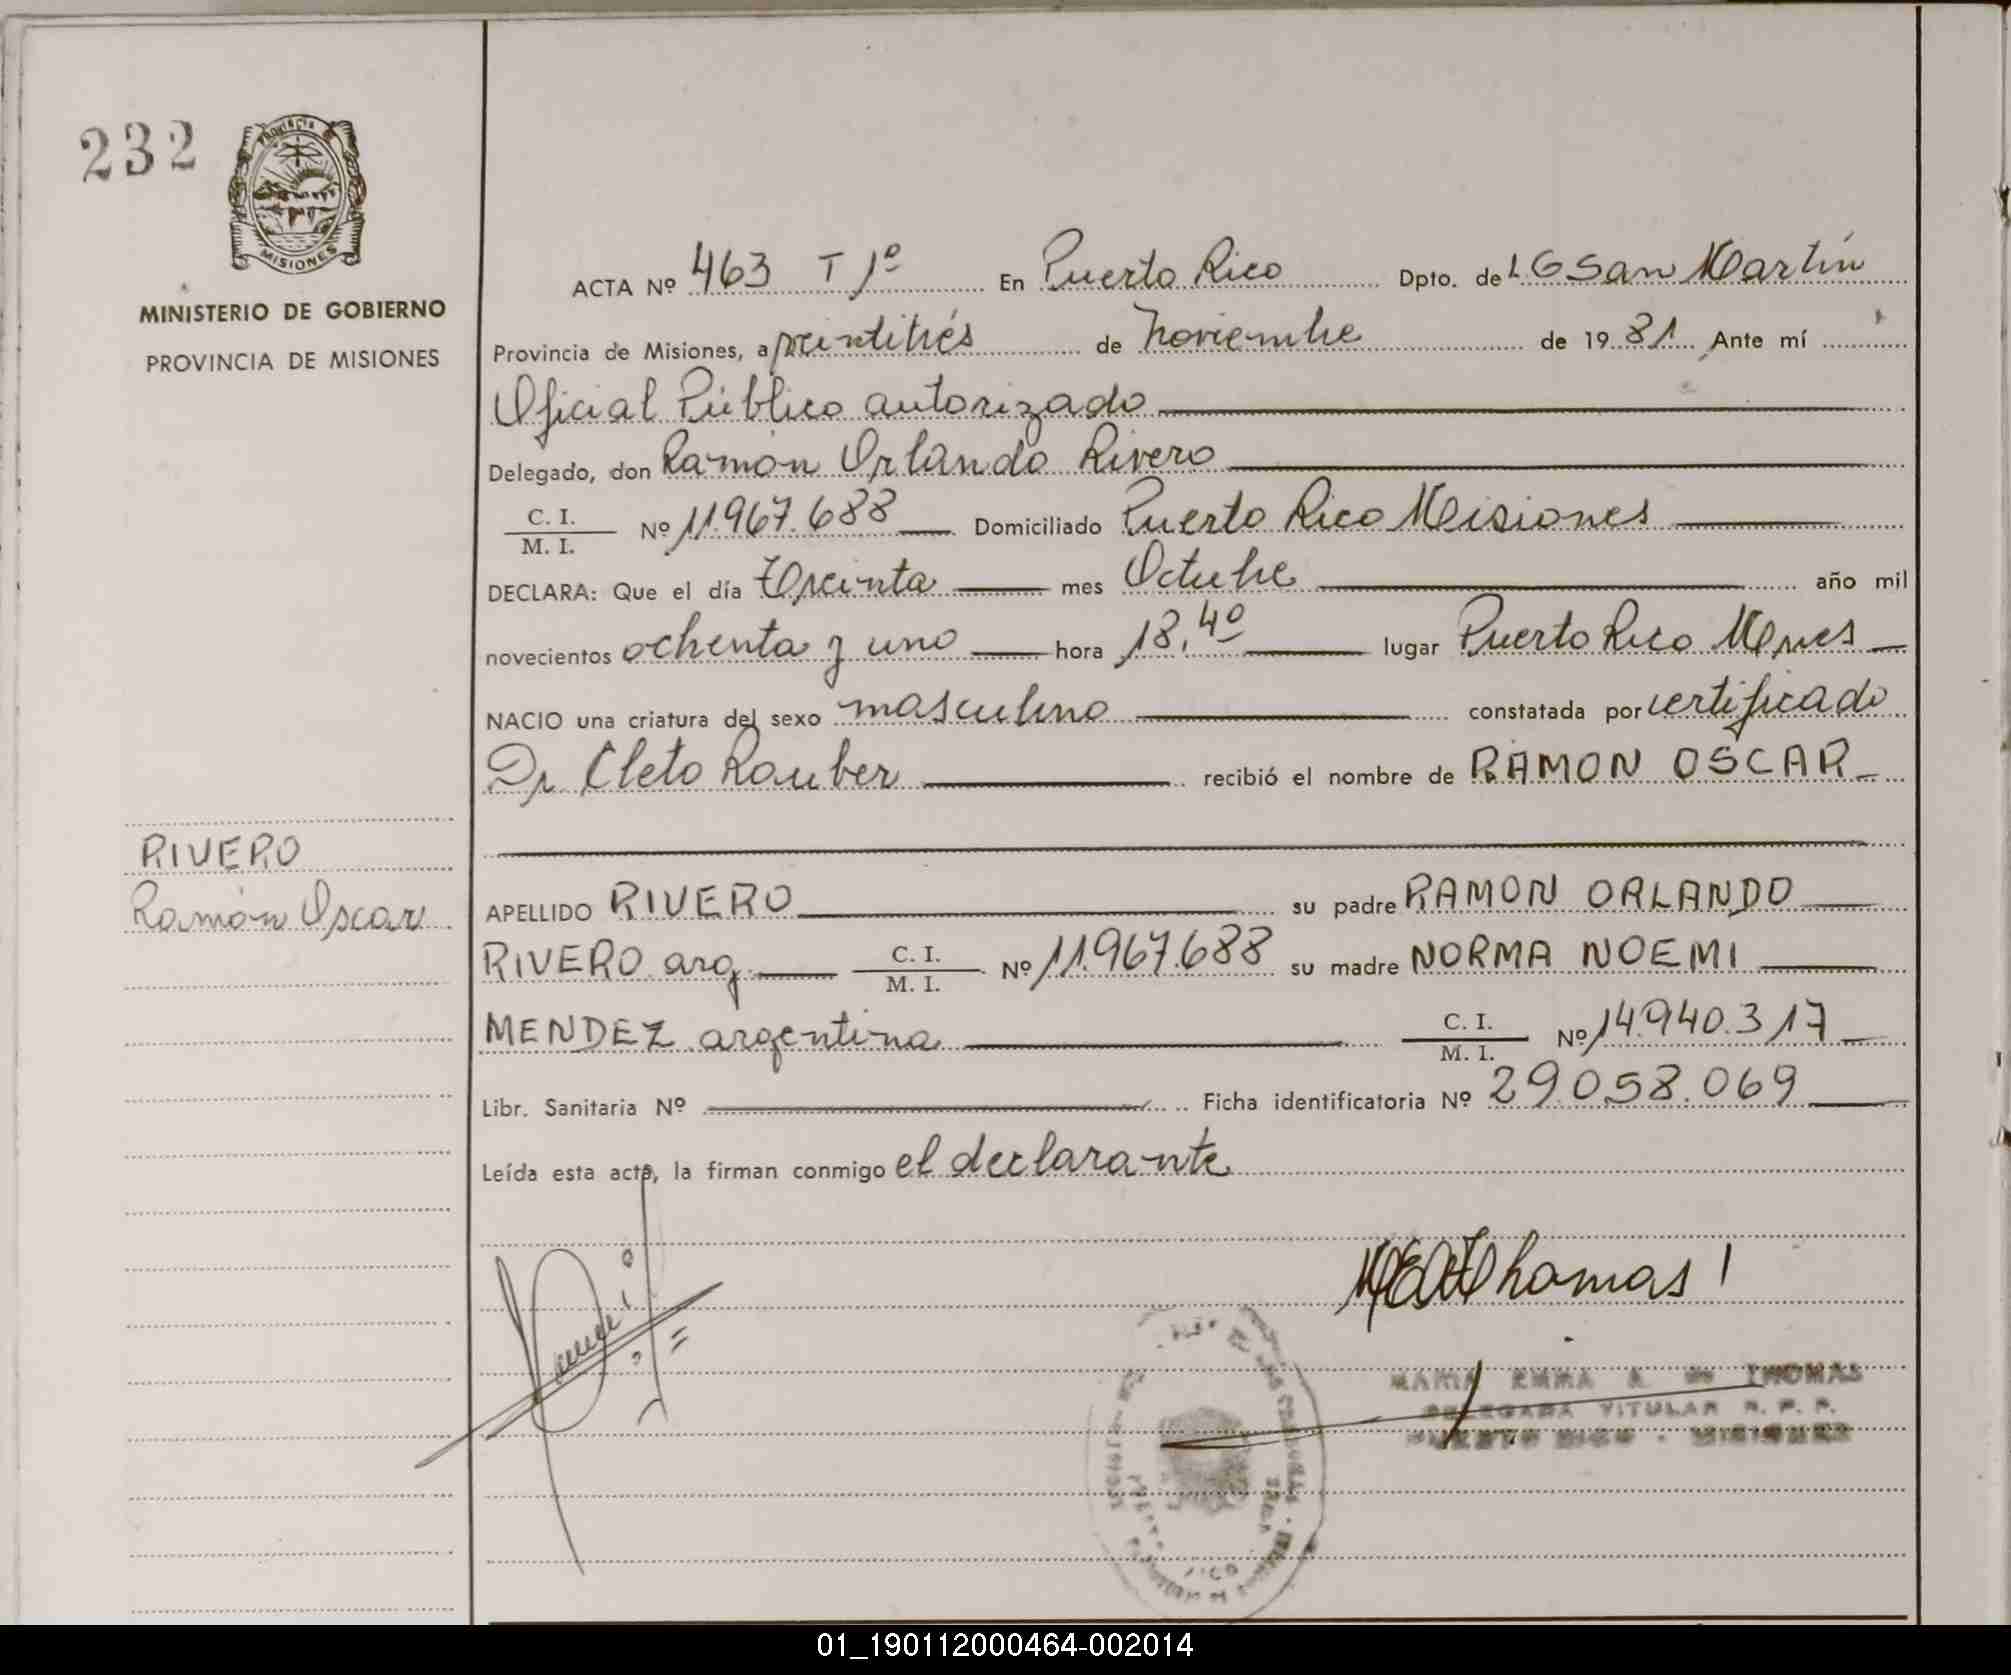 232
PROVINCIA DE
MISIONES
MINISTERIO DE GOBIERNO
PROVINCIA DE MISIONES
ACTA Nº 463 T 1º En Puerto Rico Dpto. de L G San Martín
Provincia de Misiones, a veintitrés de noviembre de 19 81 Ante mí
Oficial Público autorizado
Delegado, don Ramón Orlando Rivero
C. I.
M. I. Nº 11.967.688 Domiciliado Puerto Rico Misiones
DECLARA: Que el día Treinta mes Octubre año mil
novecientos ochenta y uno hora 18,40 lugar Puerto Rico Mnes
NACIO una criatura del sexo masculino constatada por certificado
Dr Cleto Rauber recibió el nombre de RAMON OSCAR
RIVERO
Ramón Oscar
APELLIDO RIVERO su padre RAMON ORLANDO
RIVERO arg. C. I. M. I. Nº 11.967.688 su madre NORMA NOEMI
MENDEZ argentina C. I. M. I. Nº 14.940.317
Libr. Sanitaria Nº Ficha identificatoria Nº 29.058.069
Leída esta acta, la firman conmigo el declarante
MEAThomas
MARIA EMMA A. de THOMAS
DELEGADA TITULAR R. P. P.
PUERTO RICO - MISIONES
01_190112000464-002014